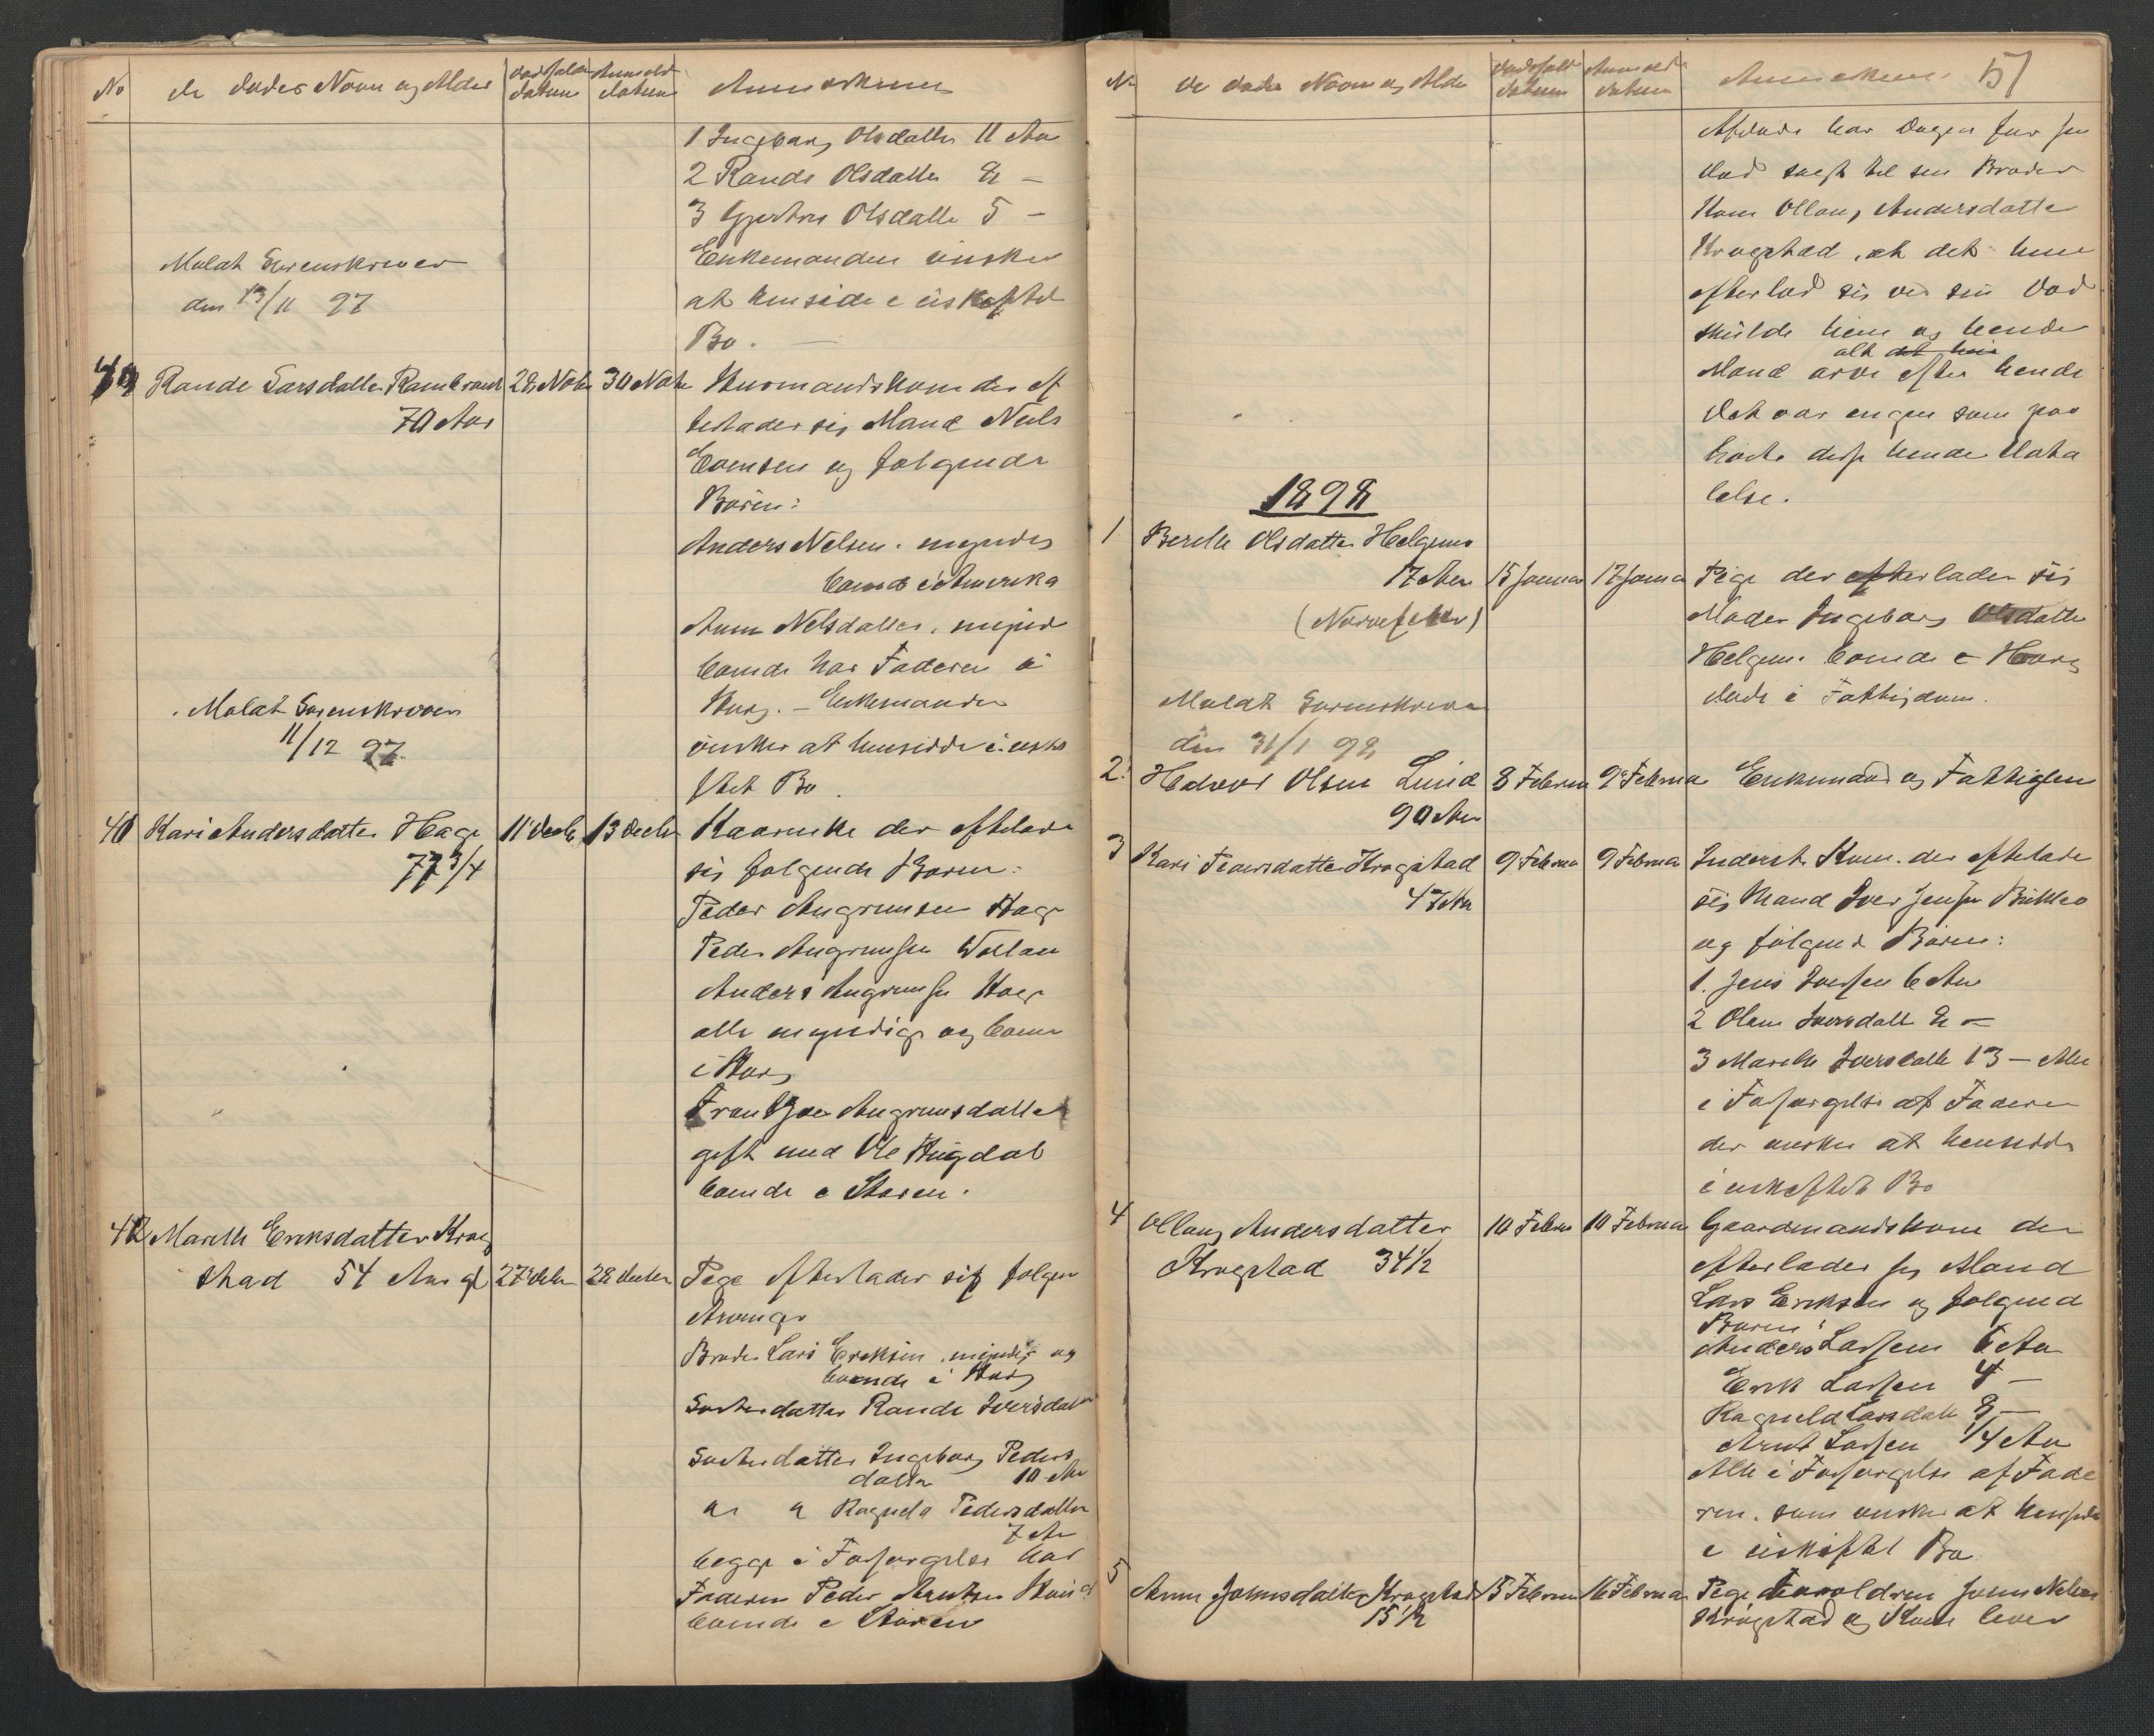 No de dødes Navn og Alder Dødsfalds Datum Anmeldt Datum Anmerkning
1 Ingebor, Olsdatter 11 Aar
2 Rande Olsdatter 8 —
3 Gjertru Olsdatter 5 —
Enkemanden ønsker
at hensidde i uskiftet
Bo. —
Meldt Sorenskriver
den 13/11 97
40 Rande Larsdatter 28 Nobr 30 Nobr Husmandskone der ef
70 Aar
terlader sig Mand Nels
Evensen og følgende
Børen:
Anders Nelsen. myndig
boende i Amerika
Anne Nelsdatter. myndi
boende hos Faderen i
Horg. — Enkemanden
ønsker at hensidde i uski
ftet Bo.
Meldt Sorenskriver
11/12 97.
41 Kari Andersdatter Hage 11 Decbr 13 Decbr Kaarenke der efterlader
77 3/4
sig følgende Børen:
Peder Angrimsen Hage
Peder Angrimsen Wollan
Anders Angrimsen Hage
alle myndige og boen
i Horg
Angrimsdatter
gift med Ole Hugdal
boende i Støren.
42 Marith Eriksdatter Krog
stad 54 Aar gl 27 decbr 28 decbr Pige efterlader sig følgen
Arvinger
Broder Lars Eriksen. myndig og
boende i Horg
Søsterdatter Rande Iversdatter
Søsterdatter Ingeborg Peders
datter 10 Aar
" " Ragnela Pedersdatter
7 Aar
begge i Forsørgelse hos
Faderen Peder Arntsen
boende i Støren
No de dødes Navn og Alder Dødsfalds Datum Anmeldt Datum Anmerkning 57
Afdøde har Dagen før sin
Død sagt til sin Broder
Kone Ollau, Andersdatter
Krogstad, at det hun
efterlod sig ved sin Død
skulde hun og hendes
alt det hun
Mand arve efter hende
Det var ingen som paa
hørte disse hendes Udta
lelse.
1898
1 Berith Olsdatter Helgemo
17 Aar 15 Januar 17 Januar Pige der efterlader sig
Moder Ingeborg Olsdatter
Helgem. boende i Horg
døde i Fattigdom.
Meldt Sorenskriver
den 31/1 98
2. Halvor Olsen Lund 8 Februar 9 Februar Enkemand og Fattiglem
90 Aar
3 Kari Pedersdatter Krogstad 9 Februar 9 Februar Inderst Kone. der efterlader
47 Aar
sig Mand Iver Jensen
og følgend Børen:
1. Jens Iversen 6 Aar
2 Olene Iversdatt 8 —
3 Marith Iversdatt 13 — Alle
i Forsørgelse af Faderen
der ønsker at hensidde
i uskiftet Bo
4 Ollaug Andersdatter 10 Februar 10 Februar Gaardmandskone der
Krogstad 34 1/2
efterlader sig Mand
Lars Eriksen og følgend
Børen:
Anders Larsen 6 Aar
Erik Larsen 4 —
Ragnild Larsdatt 8 —
Arnt Larsen 1/4 Aar
Alle i Forsørgelse af Fade
ren. som ønsker at hensidde
i uskiftet Bo
5 Anne Johnsdatter Krogstad 15 Februar 16 Februar Pige Forældren John Nelsen
15 1/2
Krogstad og Kone lever